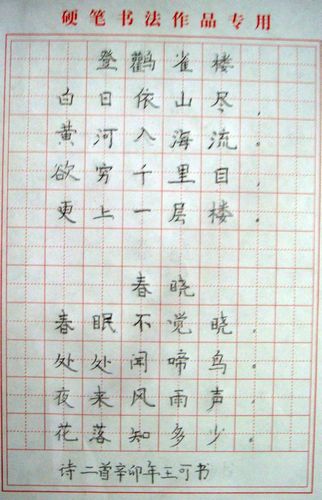 硬笔书法作品专用
登鹳雀楼
白日依山尽，
黄河入海流。
欲穷千里目，
更上一层楼。
春晓
春眠不觉晓。
处处闻啼鸟。
夜来风雨声.
花落知多少。
诗二首辛卯年王可书